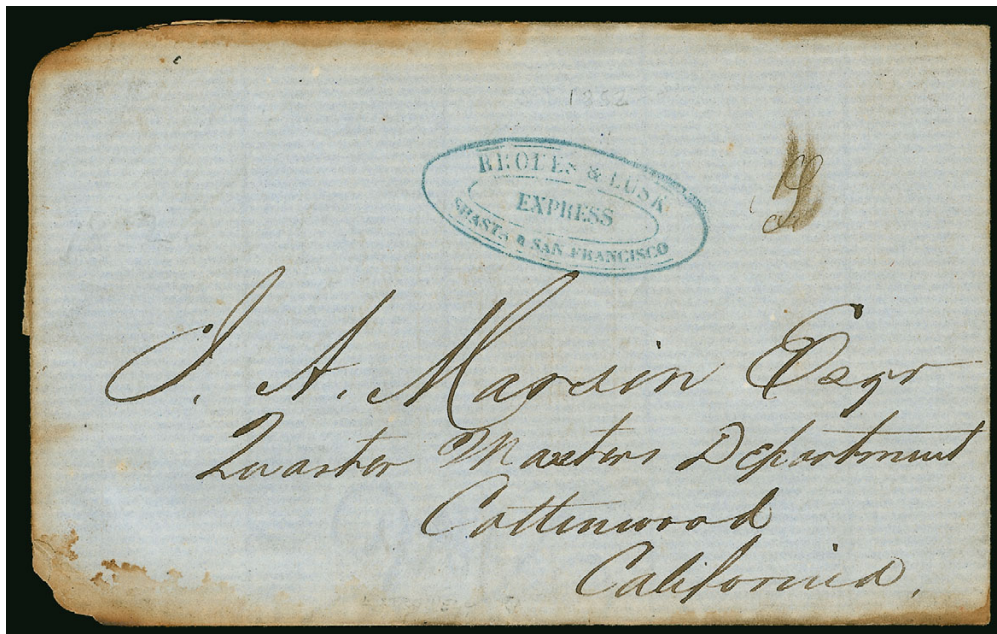 1852
RHODES & LUSK
EXPRESS
SHASTA & SAN FRANCISCO
J. A. Marsin Esqr
Quarter Masters Department
Cottinwood
California.